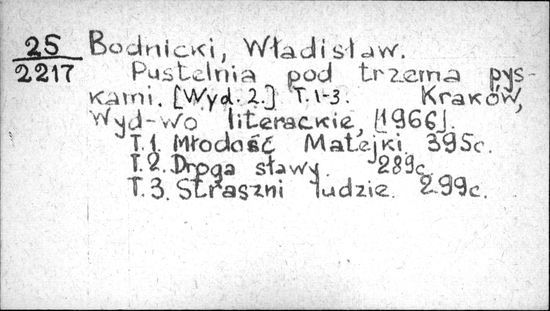 25 Bodnicki, Władisław.
2217 Pustelnia pod trzema pys-
kami. [Wyd. 2.] T. 1-3. Kraków,
Wyd-wo literackie, [1966].
T. 1. Młodość Matejki. 395c.
T. 2. Droga sławy. 289c.
T. 3. Straszni ludzie. 299c.